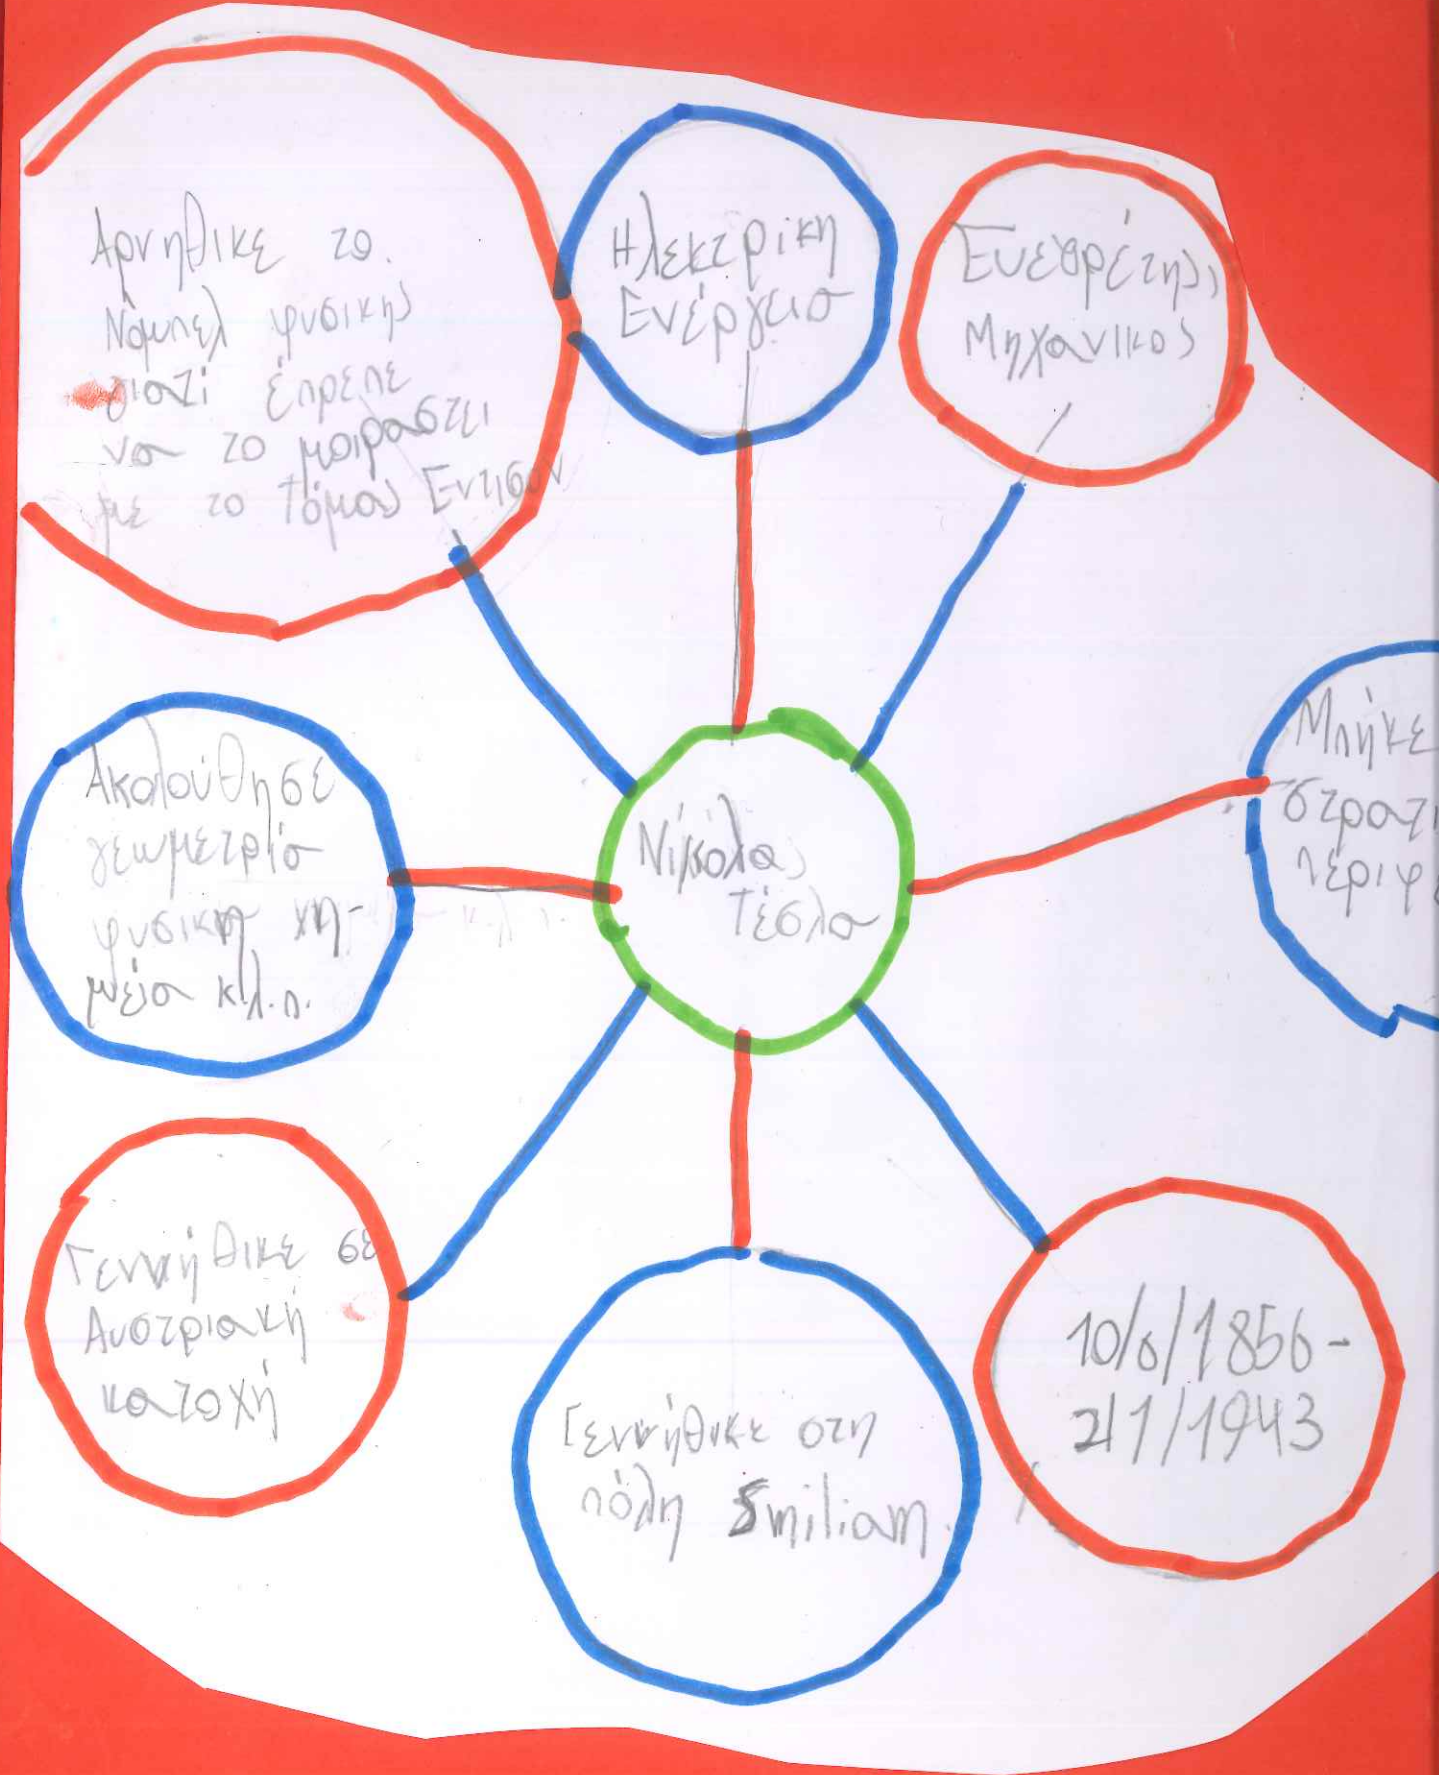 Αρνήθικε το
Νόμπελ φυσικής
γιατί έπρεπε
να το μοιραστεί
με το Τόμας Εντισον
Ηλεκτρικη
Ενέργεια
Ευεθρέτης,
Μηχανικος
Μπήκε
στρατι
περιφε
Νίκολας
Τέσλα
Ακολούθησε
γεωμετρία
φυσικη χη-
μεία κ.λ.π.
Γεννήθικε σε
Αυστριακή
κατοχή
Γεννήθικε στη
πόλη Smiliam.
10/6/1856-
2/1/1943